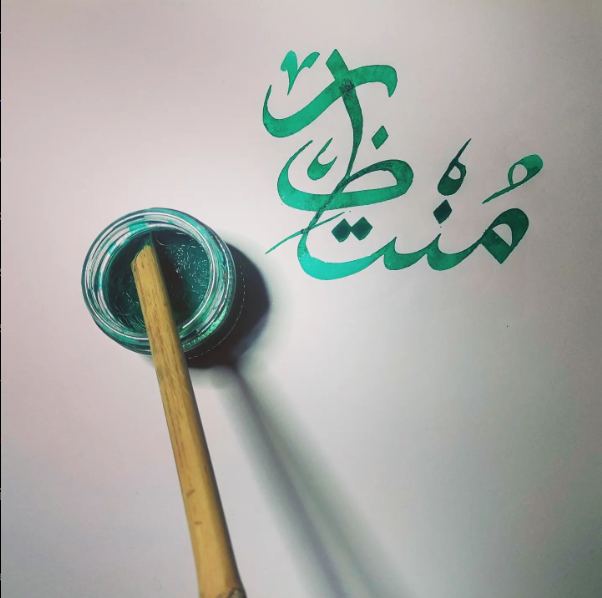 مُنْتَظِر